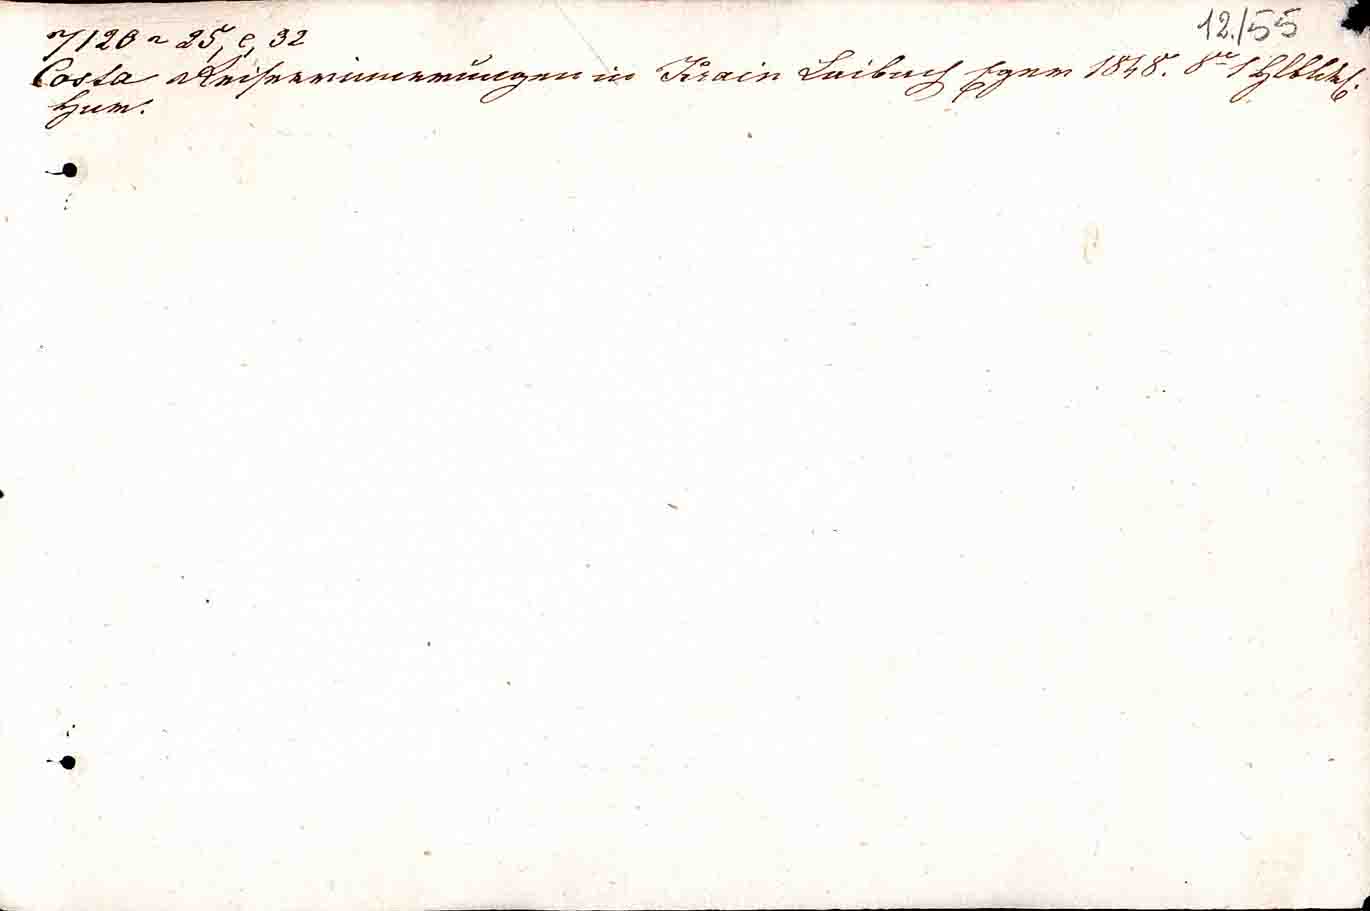 12./55
7120 ~ 25, c, 32
Costa Reiseerinnerungen in Krain Laibach Eger 1848. 8º 1 Hlblhf.
Hum.